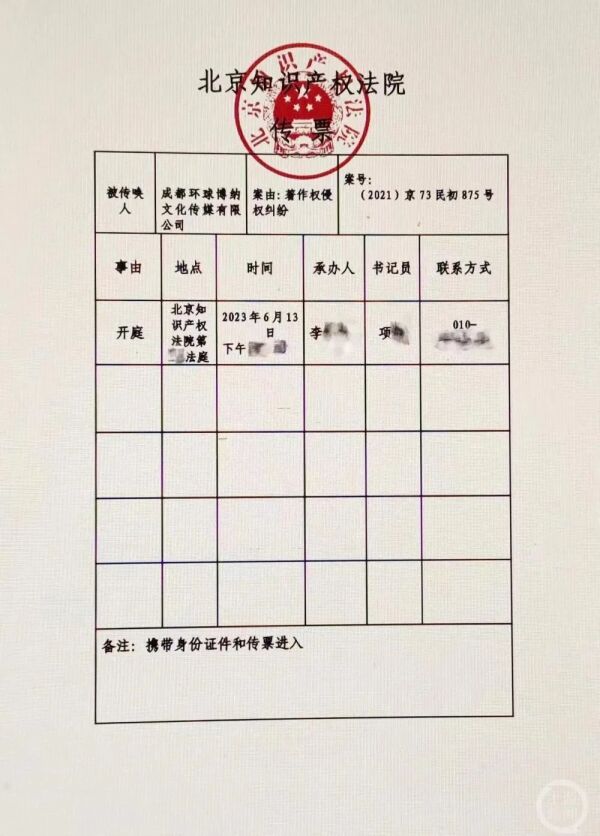 北京知识产权法院
北京知识产权法院
传 票
被传唤
人
成都环球博纳
文化传媒有限
公司
案由: 著作权侵
权纠纷
案号:
（2021）京 73 民初 875 号
事由
地点
时间
承办人
书记员
联系方式
开庭
北京知
识产权
法院第
法庭
2023 年 6 月 13
日
下午
李
项
010-
备注: 携带身份证件和传票进入